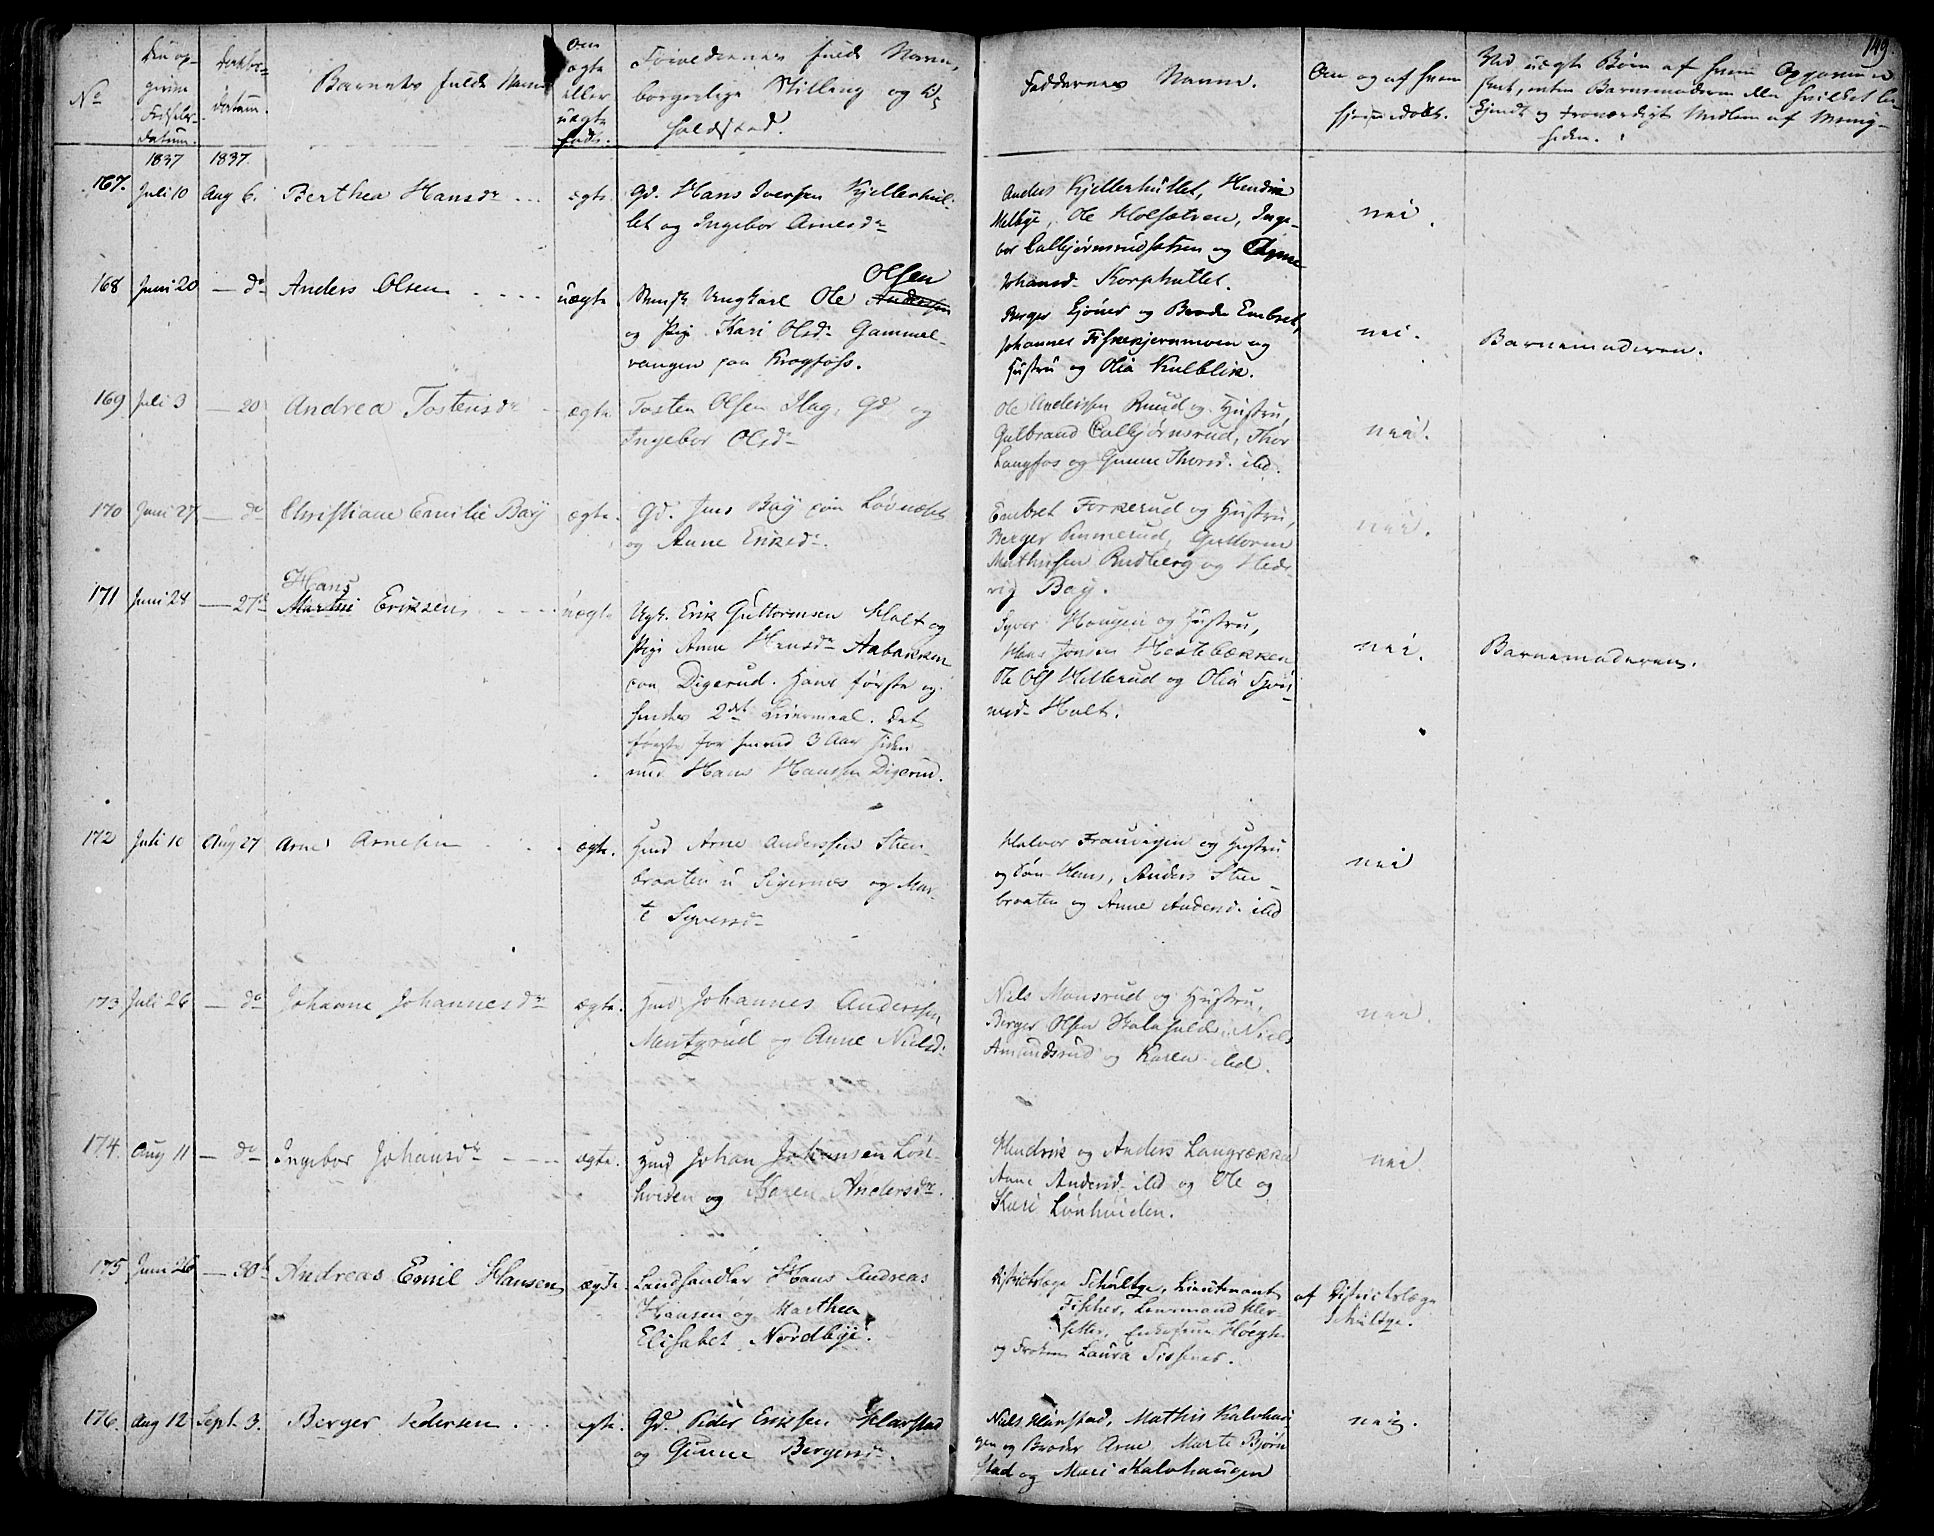 149.
No
Den op-
givne
Fødsels-
datum.
Daabs-
datum.
Barnets fulde Navn
Om
ægte
eller
uægte
født.
Forældrenes fulde Navne,
borgerlige Stilling og
holdsted.
Faddernes Navne.
Om og af hvem
hjemmedøbt.
Ved uægte Børn af hvem Opgaven er
skeet, enten Barnemoderen eller hvilket be-
kjendt og troværdigt Medlem af Menig-
heden.
1837 1837.
167. Juli 10 Aug 6. Berthea Hansdr ægte Gd. Hans Iversen Kjellerhul-
let og Ingebor Arnesdr
Anders Kjellerhullet, Hendrik
Melbye, Ole Holsætren, Inge-
bor Calbjørnsrudsætren og
Johansd. Korphullet.
nei.
168 Juni 20 — do Anders Olsen uægte Ungkarl Ole Anderssen Olsen
og Pige Kari Olsdr Gammel-
vangen paa Kragfoss.
Berger og Broder Embret,
Johannes Fiskekjernmoen og
Hustru og Olia Kulblik.
nei. Barnemoderen.
169 Juli 3 — 20 Andrea Tostensdr ægte Tosten Olsen Hag, Gd. og
Ingebor Olsdr
Ole Anderssen Ruud og Hustru,
Gulbrand Calbjørnsrud, Thor
Langfos og Gunne Thorsd. ibd.
nei.
170 Juni 27 — do Christiane Emilie Bay ægte. Gd. Jens Bay paa Løvnæset
og Anne Eriksdr.
Embret Forkerud og Hustru,
Berger Rimmerud, Guttorm
Mathisen Rudberg og Hed-
vig Bay.
nei.
171 Juni 24 — 27d Hans
Martin Eriksen uægte Ugk. Erik Guttormsen Holt og
Pige Anne Hansdr Aabakken
paa Digerud. Hans første og
hendes 2det Leiermaal. Det
første for henved 3 Aar siden
med Hans Hanssen Digerud.
Syver Haugen og Hustru,
Hans Jonsen Hestebækken
Ole Ols Hillerud og Olia
Holt.
nei. Barnemoderen.
172 Juli 10 Aug 27 Arne Arnesen ægte. Hmd Arne Anderssen Sten-
braaten u Sigernes og Mar-
te Syversdr
Halvor Fraudigin og Hustru
og Søn Hans, Anders Sten-
braaten og Anne Andersd. ibd
nei
173 Juli 26 — do Johanne Johannesdr ægte. Hmd Johannes Anderssen
Mentzrud og Anne Nielsd.
Niels Monsrud og Hustru,
Berger Olsen, Niels
Amundsrud og Karen ibd.
nei.
174. Aug 11 — do Ingebor Johansdr ægte. Hmd Johan Johansen Løn-
hviden og Karen Andersdr.
Hendrik og Anders Langrækka
Anne Andersd. ibd og Ole og
Kari Lønhviden.
nei
175 Juni 26 — 30d Andreas Emil Hansen ægte Landhandler Hans Andreas
Hansen og Marthea
Elisabet Nordbye.
Districtslæge Schultze, Lieutenant
Fischer, Lensmand Her-
setter, Enkefrue Høegh
og Frøken Laura
af Districtslæge
Schultze.
176. Aug 12 Sept. 3. Berger Pedersen ægte. Gd. Peder Eriksen Harstad
og Gunne Bergersdr.
Niels Harstad, Mathis Kalvhau
gen og Broder Arne, Marte Bjørn
stad og Mari Kalvhaugen
nei.